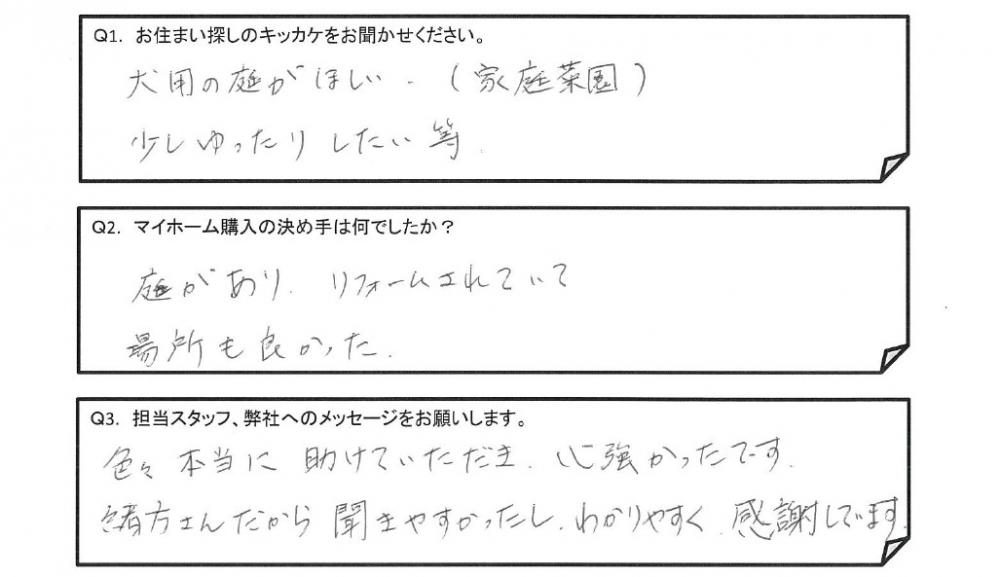 Q1. お住まい探しのキッカケをお聞かせください。
犬用の庭がほしい.(家庭菜園)
少しゆったりしたい等.
Q2. マイホーム購入の決め手は何でしたか？
庭があり. リフォームされていて
場所も良かった.
Q3. 担当スタッフ、弊社へのメッセージをお願いします。
色々本当に助けていただき、心強かったです.
緒方さんだから聞きやすかったし、わかりやすく、感謝してます.